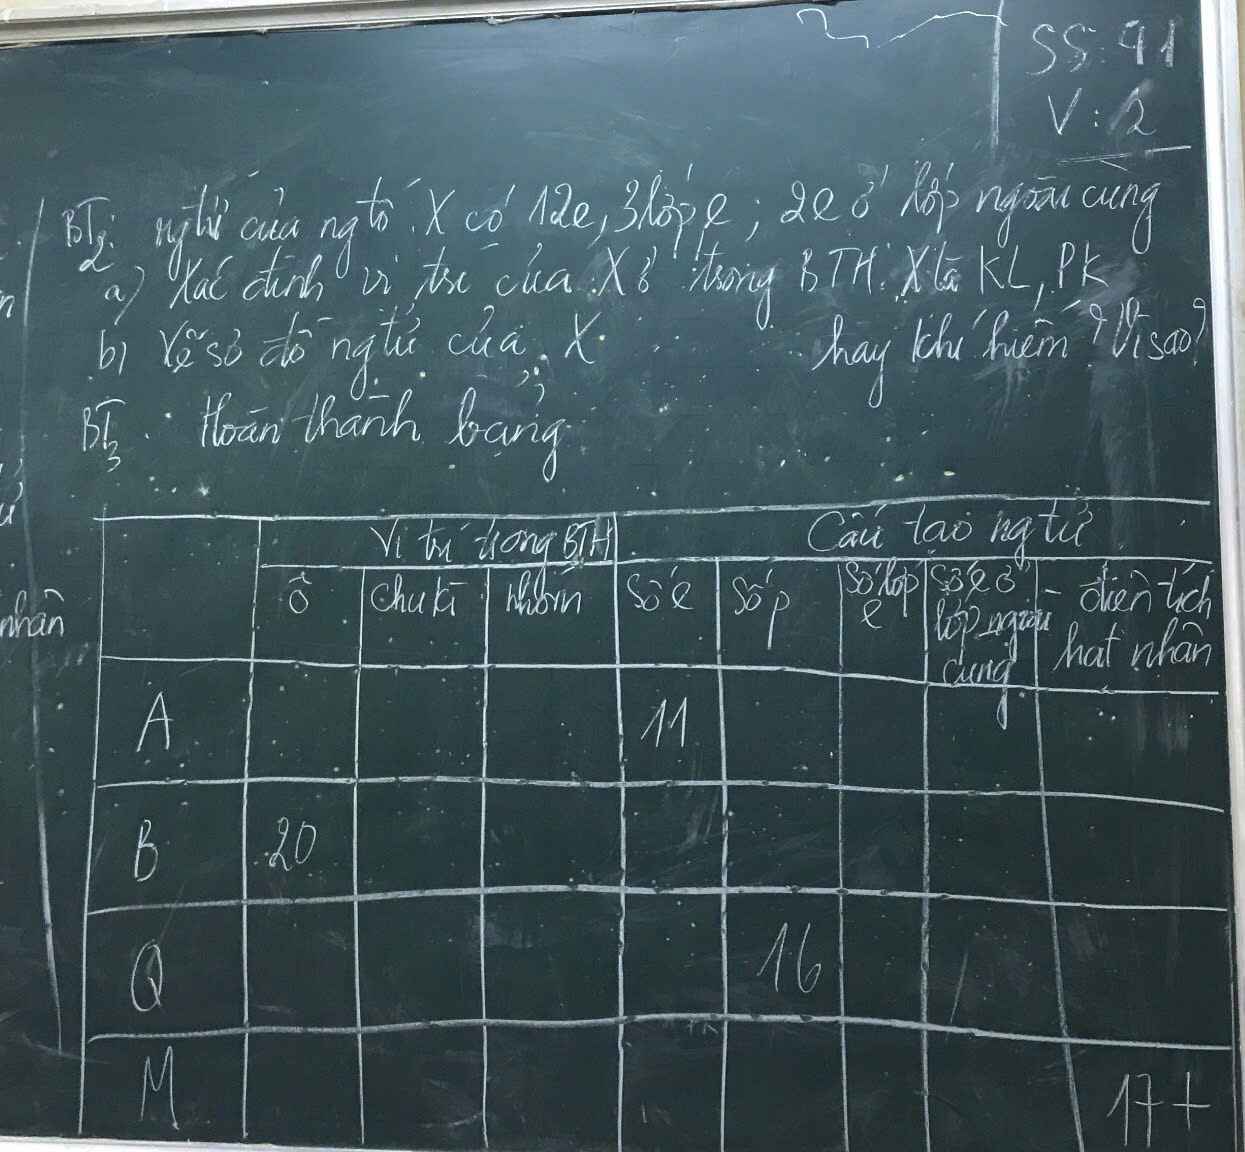 SS: 41
V: 2
BT2: ngtử của ngtố X có 12e, 3 lớp e; 2e ở lớp ngoài cùng
a) Xác định vị trí của X ở trong BTH. X là KL, PK
b) Vẽ sơ đồ ngtử của X hay khí hiếm? Vì sao?
BT3. Hoàn thành bảng
Vị trí trong BTH Cấu tạo ngtử
ô chu kì nhóm số e số p số lớp e số e ở lớp ngoài cùng điện tích hạt nhân
A 11
B 20
Q 16
M 17+
nhân